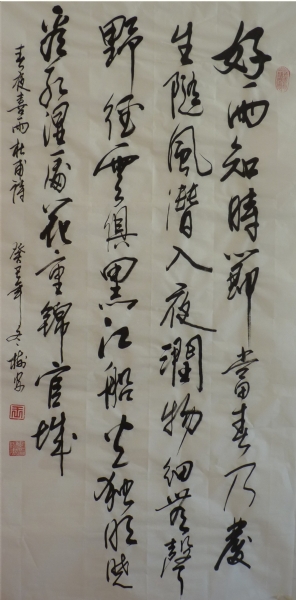 好雨知時節當春乃發
生隨風潛入夜潤物細無聲
野徑雲俱黑江船火獨明曉
看紅濕處花重錦官城
春夜喜雨杜甫詩 癸巳年冬